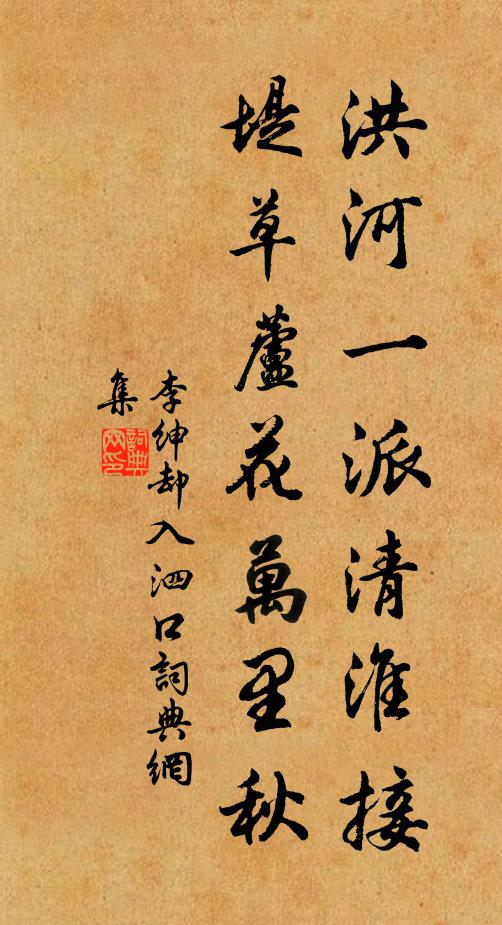 洪河一派清淮接
堤草蘆花萬里秋
李紳却入泗口詞典網
集
詞典网印